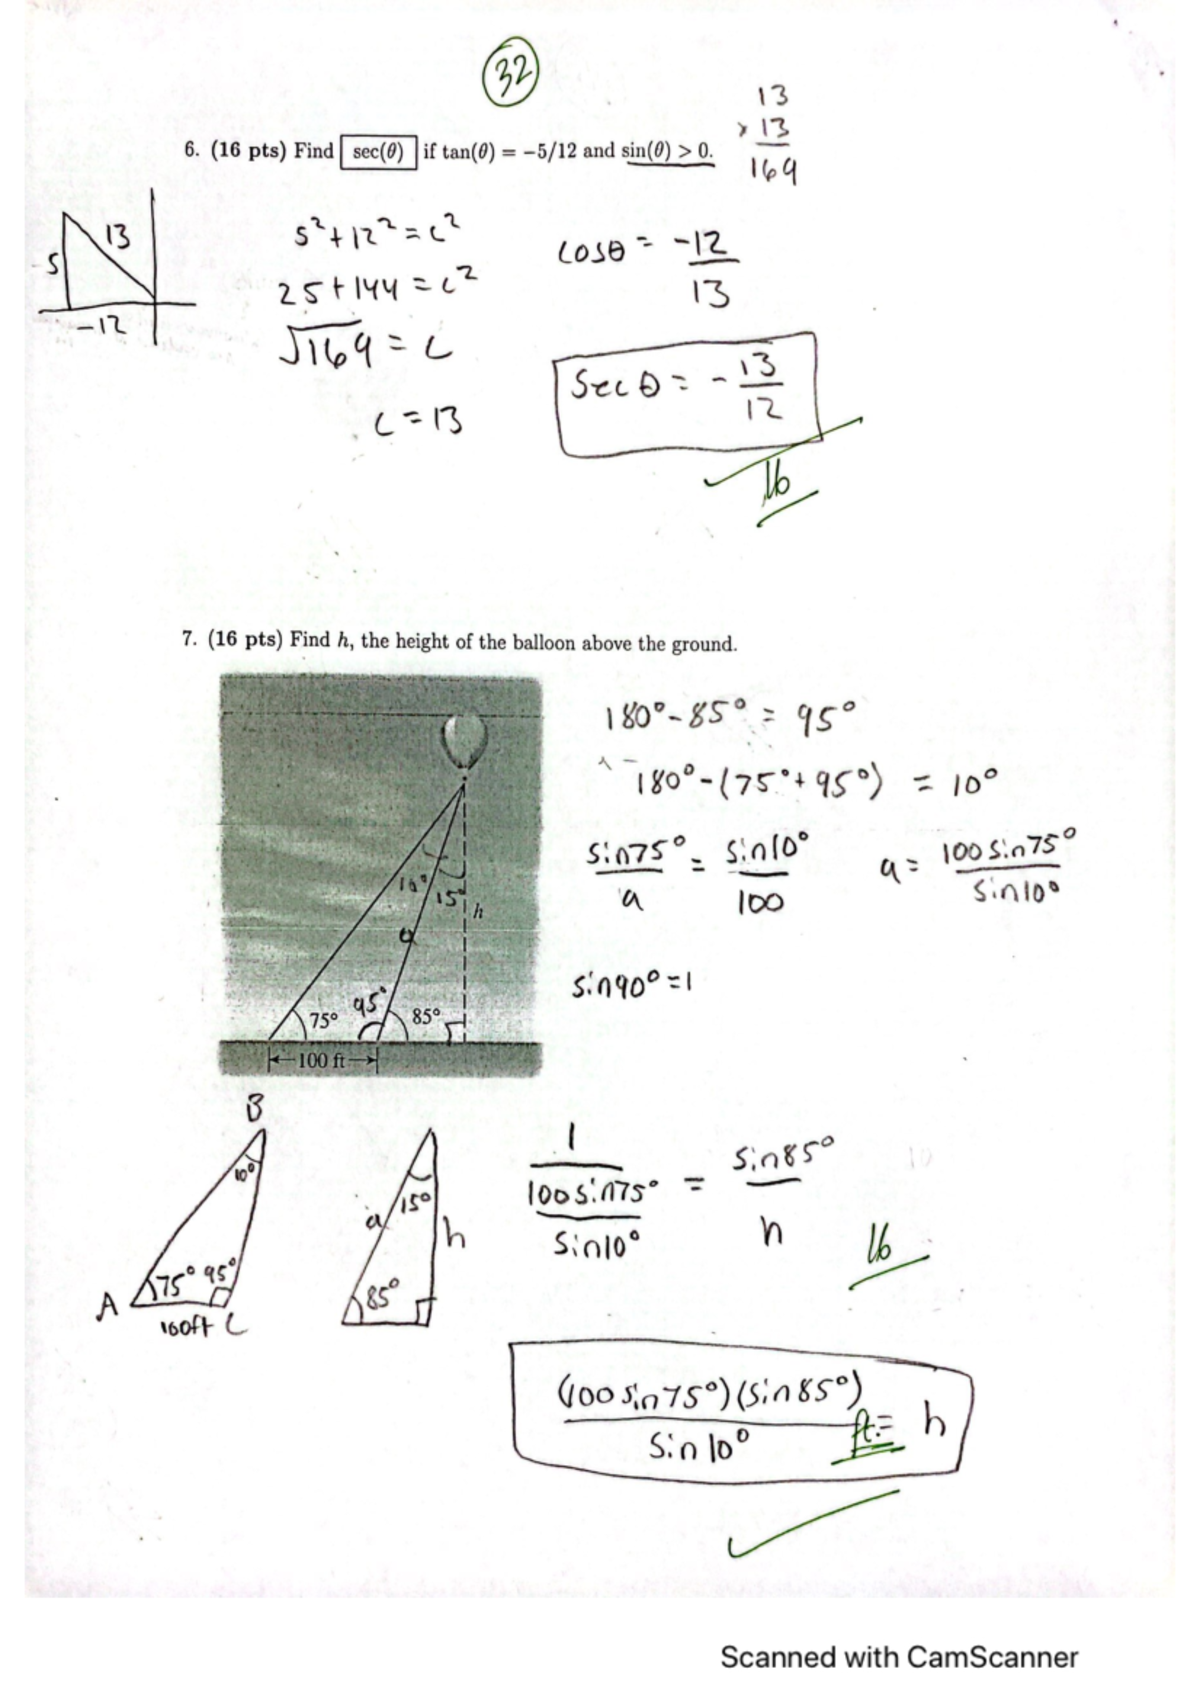 32
13
× 13
169
6. (16 pts) Find sec(θ) if tan(θ) = −5/12 and sin(θ) > 0.
13
5
-12
5²+12²=c²
25+144=c²
√169=c
c=13
cosθ = -12/13
Secθ = -13/12
16
7. (16 pts) Find h, the height of the balloon above the ground.
10°
15°
h
a
95°
75°
85°
100 ft
180°-85° = 95°
180°-(75°+95°) = 10°
sin75°/a = sin10°/100
a = 100sin75°/sin10°
sin90°=1
B
10°
75° 95°
A
100ft C
15°
a
h
85°
1/(100sin75°/sin10°) = sin85°/h
16
(100sin75°)(sin85°)/sin10° ft = h
Scanned with CamScanner